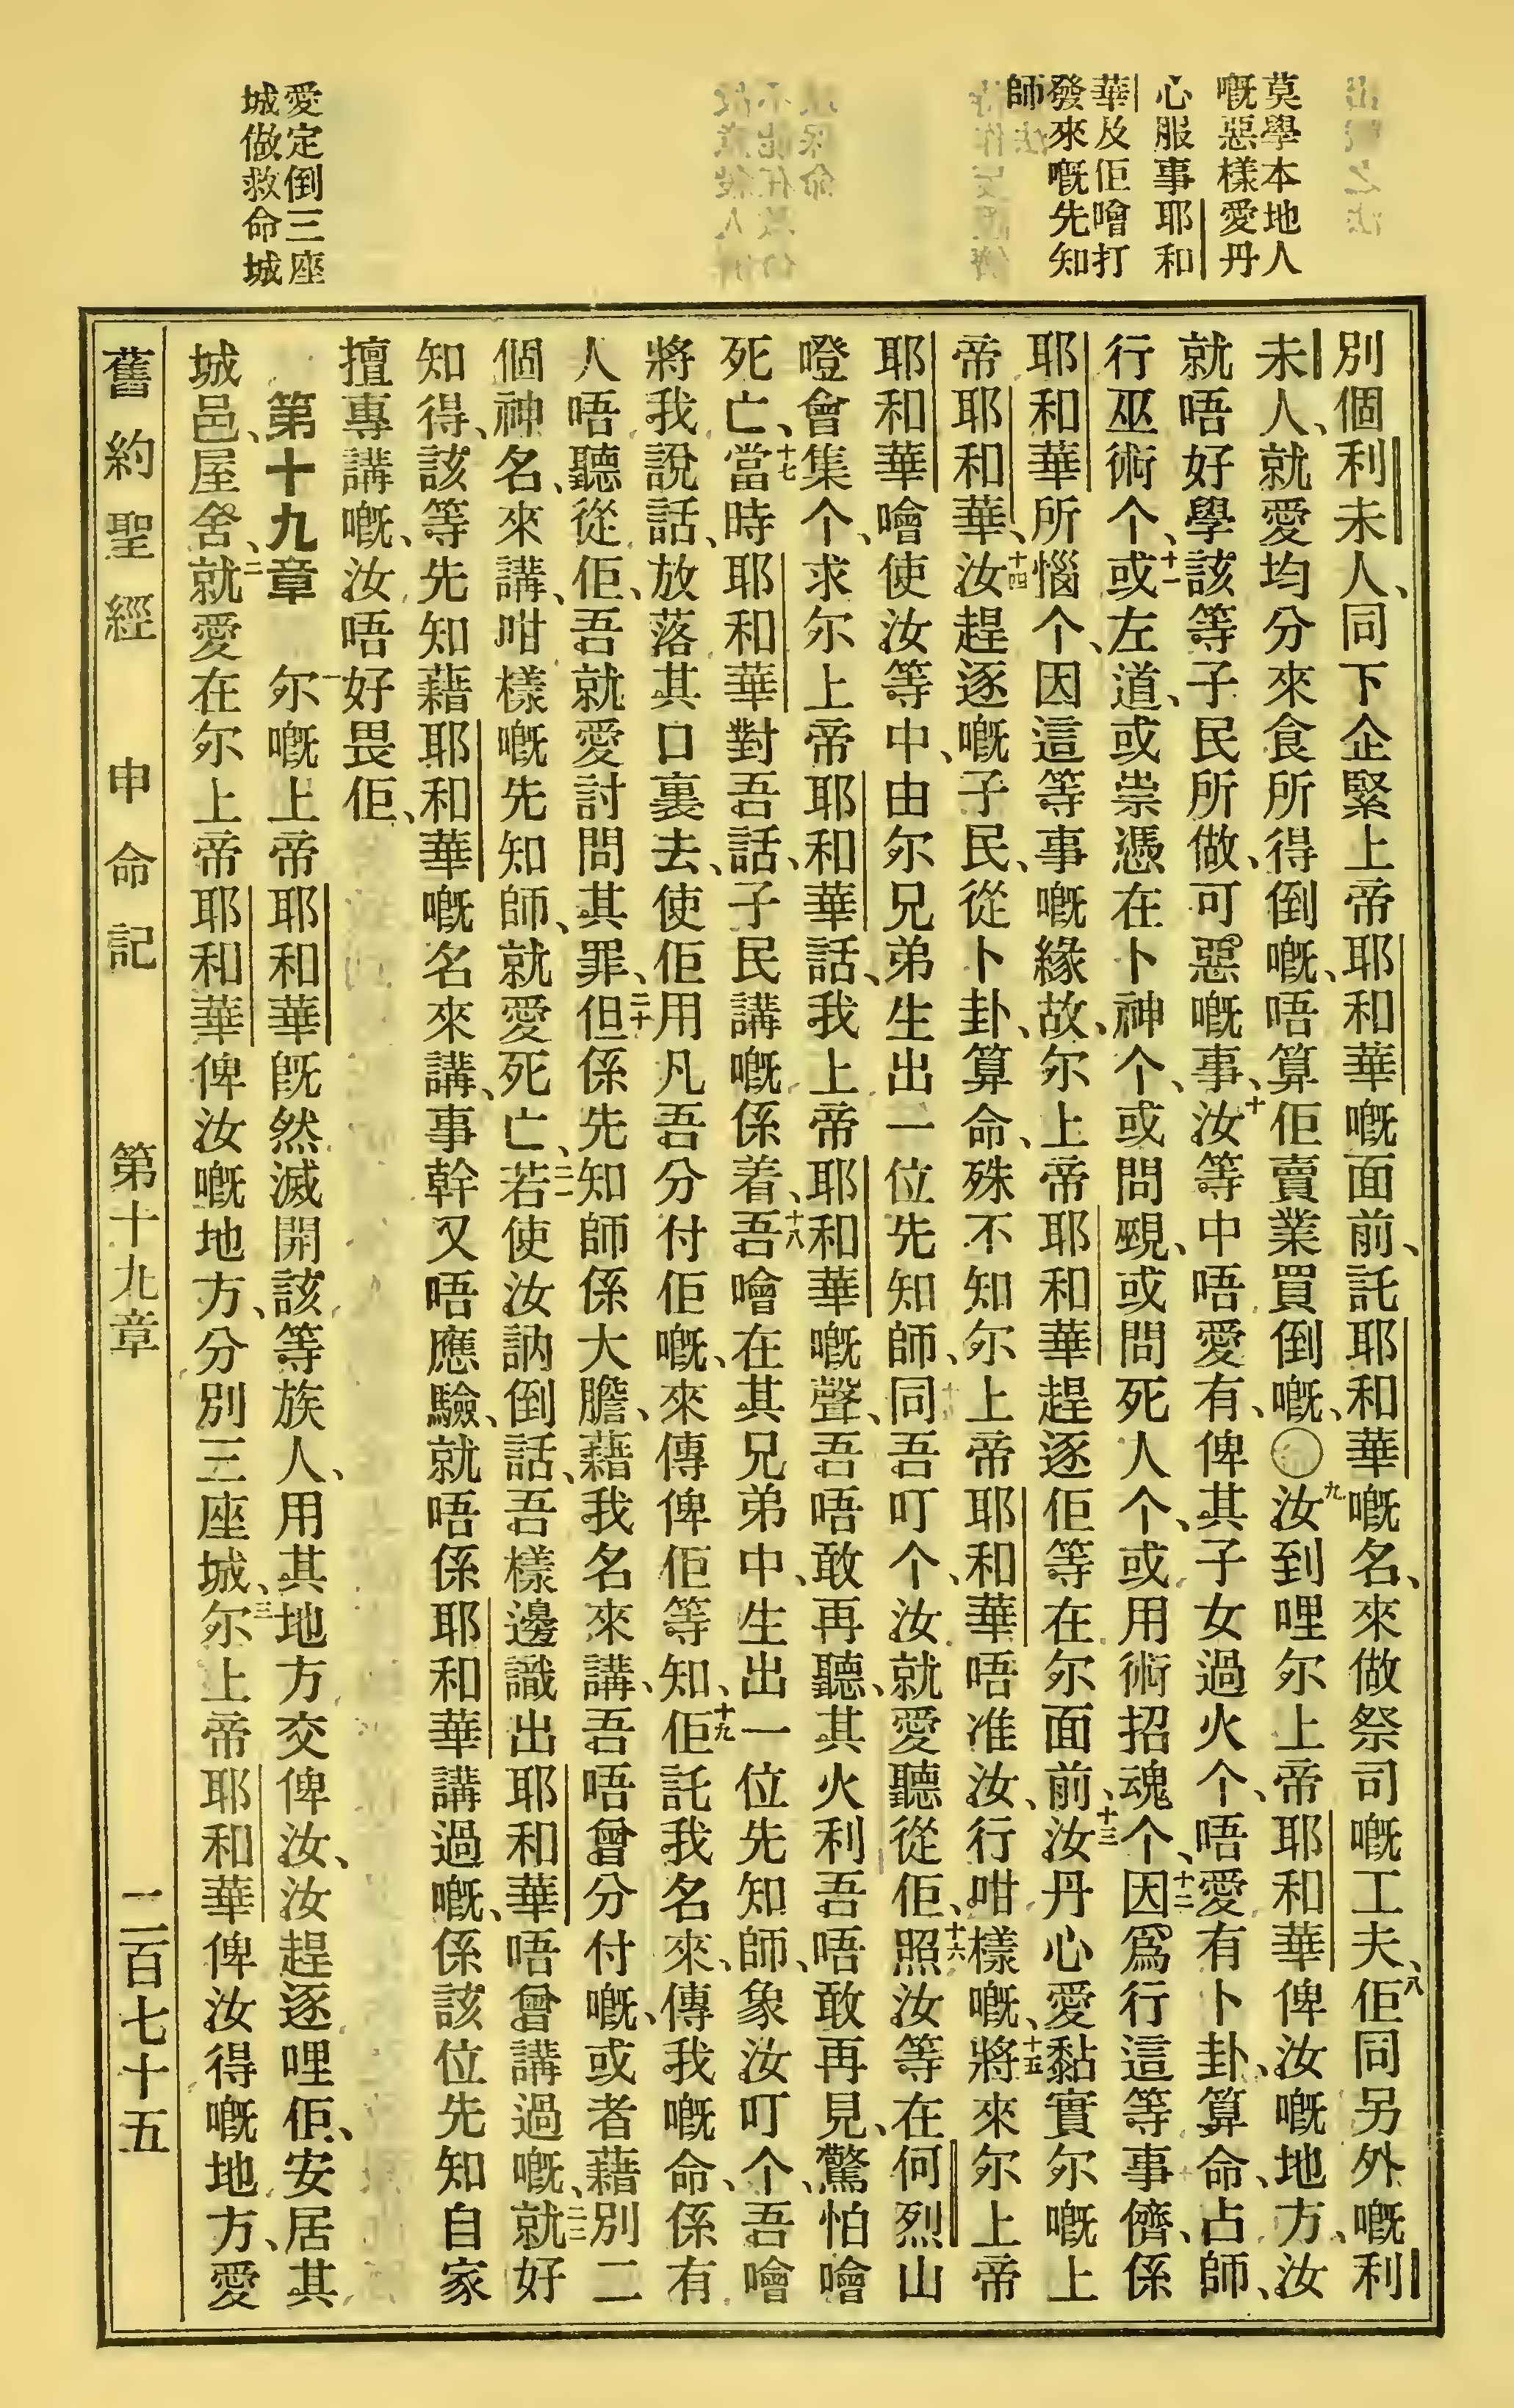 莫學本地人
嘅惡樣愛丹
心服事耶和
華及佢噲打
發來嘅先知
師
愛定倒三座
城做救命城
別個利未人、同下企緊上帝耶和華嘅面前、託耶和華嘅名、來做祭司嘅工夫、八佢同另外嘅利
未人、就愛均分來食所得倒嘅、唔算佢賣業買倒嘅、〇九汝到哩尔上帝耶和華俾汝嘅地方、汝
就唔好學該等子民所做、可惡嘅事、十汝等中唔愛有、俾其子女過火个、唔愛有卜卦、算命、占師、
行巫術个、十一或左道、或祟憑在卜神个、或問覡、或問死人个、或用術招魂个、十二因爲行這等事儕、係
耶和華所惱个、因這等事嘅緣故、尔上帝耶和華趕逐佢等在尔面前、十三汝丹心愛黏實尔嘅上
帝耶和華、十四汝趕逐嘅子民、從卜卦、算命、殊不知尔上帝耶和華唔准汝、行咁樣嘅、十五將來尔上帝
耶和華噲使汝等中、由尔兄弟生出一位先知師、同吾叮个、汝就愛聽從佢、十六照汝等在何烈山
噔會集个、求尔上帝耶和華話、我上帝耶和華嘅聲、吾唔敢再聽、其火利吾唔敢再見、驚怕噲
死亡、十七當時耶和華對吾話、子民講嘅係着、十八吾噲在其兄弟中、生出一位先知師、象汝叮个、吾噲
將我說話、放落其口裏去、使佢用凡吾分付佢嘅、來傳俾佢等知、十九佢託我名來、傳我嘅命、係有
人唔聽從佢、吾就愛討問其罪、二十但係先知師係大膽、藉我名來講、吾唔曾分付嘅、或者藉別二
個神名、來講、咁樣嘅先知師、就愛死亡、二一若使汝訥倒話、吾樣邊識出耶和華唔曾講過嘅、二二就好
知得、該等先知藉耶和華嘅名來講、事幹又唔應驗、就唔係耶和華講過嘅、係該位先知自家
擅專講嘅、汝唔好畏佢、
第十九章　一尔嘅上帝耶和華旣然滅開該等族人、用其地方交俾汝、汝趕逐哩佢、安居其
城邑、屋舍、二就愛在尔上帝耶和華俾汝嘅地方、分別三座城、三尔上帝耶和華俾汝得嘅地方、愛
舊約聖經　申命記　第十九章　二百七十五